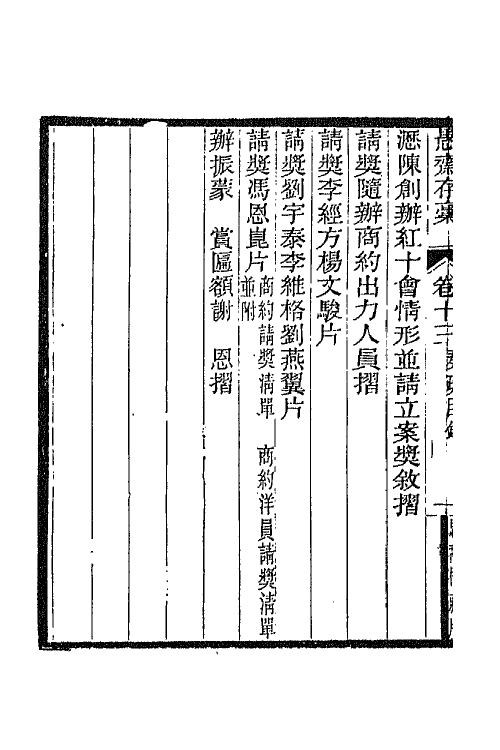 愚齋存藁 卷十三 奏疏目錄 一
瀝陳創辦紅十會情形並請立案奬敘摺
請奬隨辦商約出力人員摺
請奬李經方楊文駿片
請奬劉宇泰李維格劉燕翼片
請奬馮恩崑片 並附 商約請奬淸單 商約洋員請奬淸單
辦振蒙 賞匾額謝 恩摺